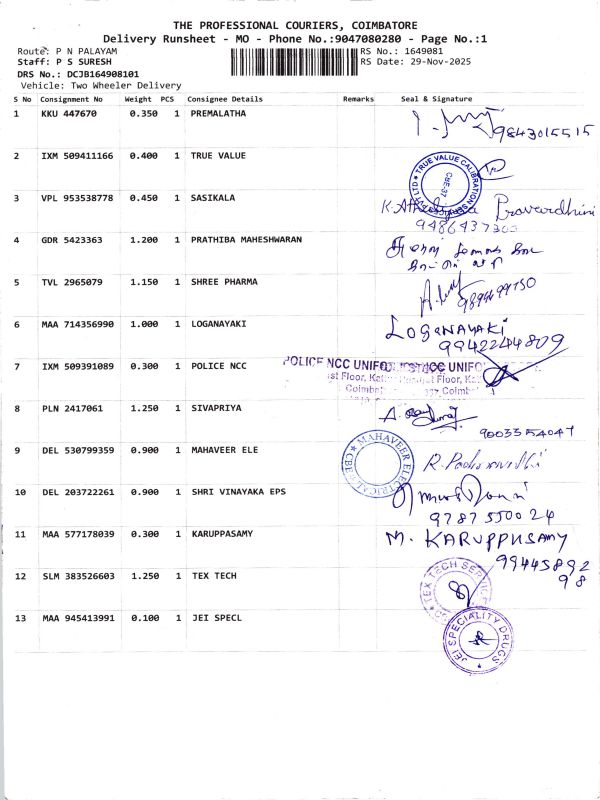 THE PROFESSIONAL COURIERS, COIMBATORE
Delivery Runsheet - MO - Phone No.:9047080280 - Page No.:1
Route: P N PALAYAM RS No.: 1649081
Staff: P S SURESH RS Date: 29-Nov-2025
DRS No.: DCJB164908101
Vehicle: Two Wheeler Delivery
S No Consignment No Weight PCS Consignee Details Remarks Seal & Signature
1 KKU 447670 0.350 1 PREMALATHA
9843015515
2 IXM 509411166 0.400 1 TRUE VALUE
TRUE VALUE CALIBRATION SERVICES PVT LTD
CBE-37
3 VPL 953538778 0.450 1 SASIKALA
9486437303
4 GDR 5423363 1.200 1 PRATHIBA MAHESHWARAN
5 TVL 2965079 1.150 1 SHREE PHARMA
6 MAA 714356990 1.000 1 LOGANAYAKI LOGANAYAKI
9942244809
7 IXM 509391089 0.300 1 POLICE NCC POLICE NCC UNIFO NCC UNIFO
8 PLN 2417061 1.250 1 SIVAPRIYA
9003354047
9 DEL 530799359 0.900 1 MAHAVEER ELE MAHAVEER ELECTRICAL CBE
10 DEL 203722261 0.900 1 SHRI VINAYAKA EPS
9787550024
11 MAA 577178039 0.300 1 KARUPPASAMY M. KARUPPUSAMY
9944589298
12 SLM 383526603 1.250 1 TEX TECH TEX TECH SERVICE
13 MAA 945413991 0.100 1 JEI SPECL JEI SPECIALITY DRUGS